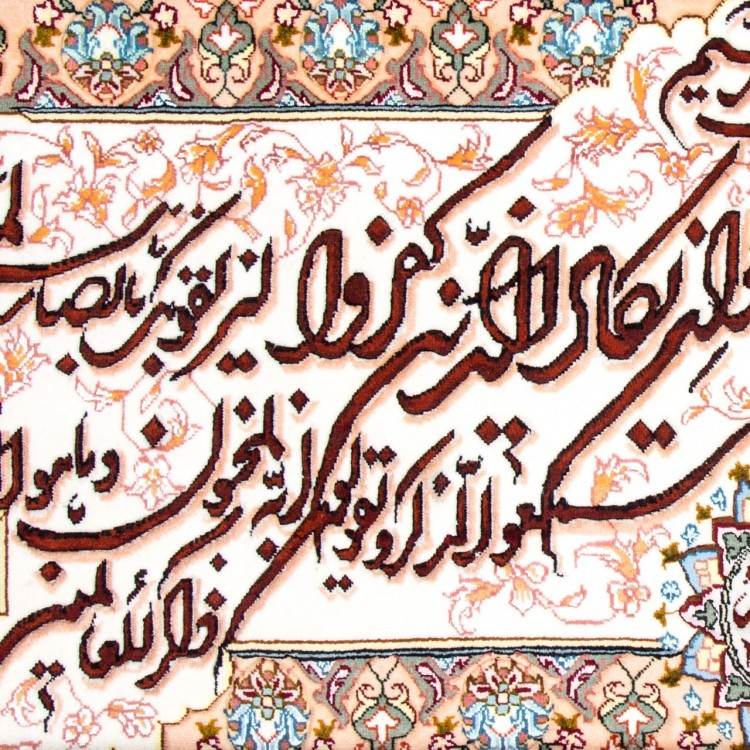 ان یکاد الذین کفروا لیزلقونک بابصار
سمعوا الذکر و یقولون انه لمجنون و ما هو
ذکر للعالمین